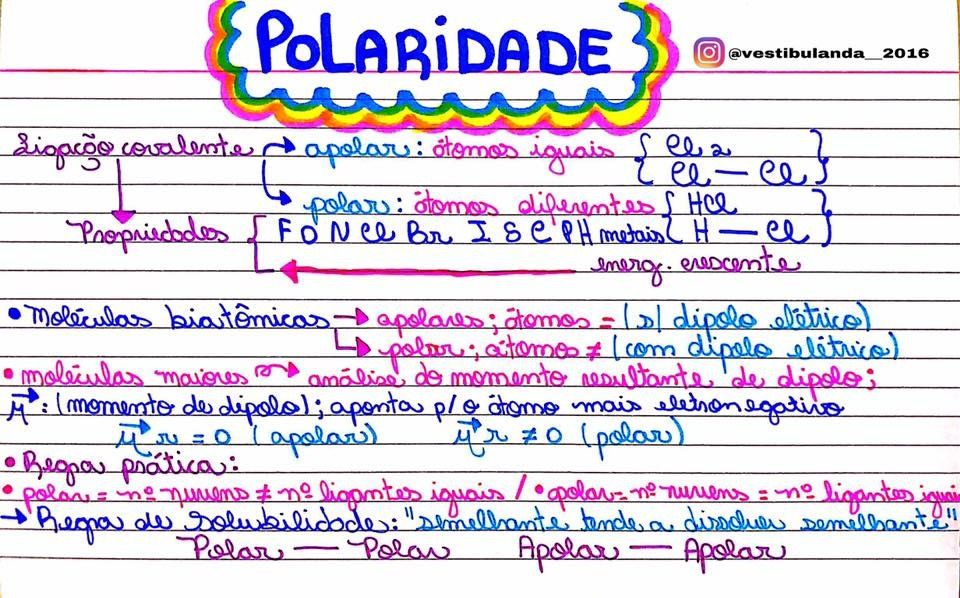 POLARIDADE
@vestibulanda__2016
Ligação covalente → apolar: átomos iguais { Cl2
Cl — Cl }
→ polar: átomos diferentes { HCl
Propriedades { F O N Cl Br I S C P H metais { H — Cl }
energ. crescente
• Moléculas biatômicas → apolares; átomos = (s/ dipolo elétrico)
→ polar; átomos ≠ (com dipolo elétrico)
• moléculas maiores → análise do momento resultante de dipolo;
μ⃗: (momento de dipolo); aponta p/ o átomo mais eletronegativo
μ⃗r = 0 (apolar) μ⃗r ≠ 0 (polar)
• Regra prática:
• polar = nº nuvens ≠ nº ligantes iguais / • apolar = nº nuvens = nº ligantes iguai
→ Regra de solubilidade: "semelhante tende a dissolver semelhante"
Polar — Polar Apolar — Apolar